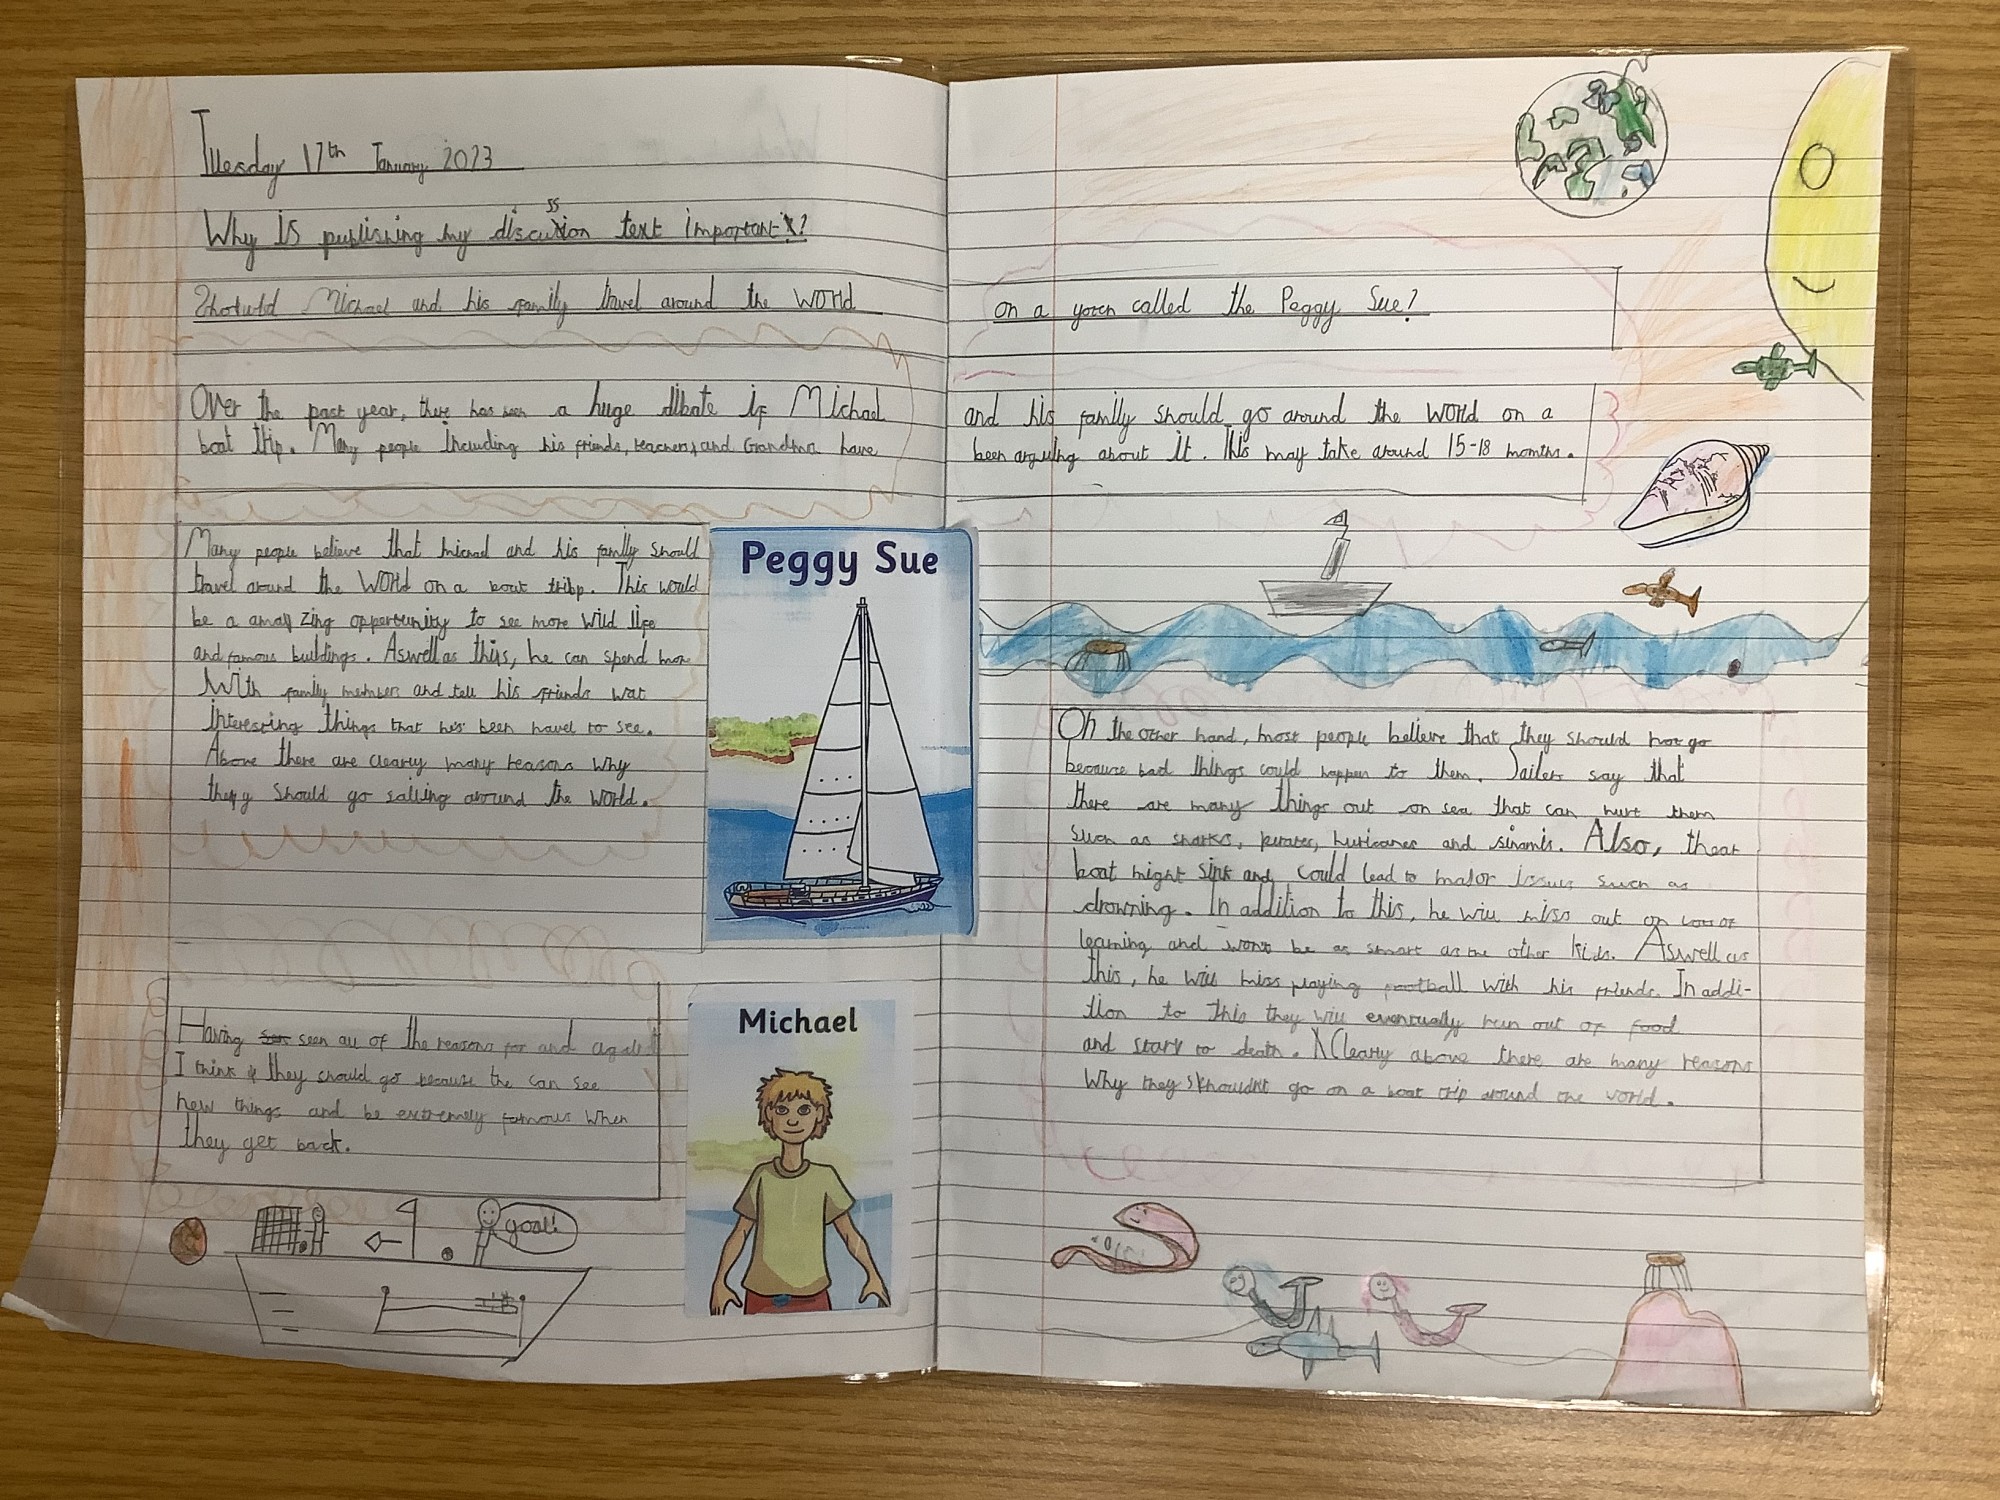 Tuesday 17th January 2023
Why is publishing my discussion text important?
Shotuld Michael and his family travel around the world
on a yotch called the Peggy Sue?
Over the past year, there has been a huge dibate if Michael
and his family should go around the world on a
boat trip. Many people including his friends, teachers, and Grandma have
been arguing about it. This may take around 15-18 months.
Many people believe that Michael and his family should
travel around the world on a boat tribp. This would
be a amazing opportunity to see more wild life
and famous buildings. Aswell as this, he can spend more
With family members and tell his friends wat
interesting things that he's been havel to see.
Above there are clearly many reasons why
they should go sailing around the world.
Peggy Sue
On the other hand, most people believe that they should not go
because bad things could happen to them. Sailers say that
there are many things out on sea that can hurt them
such as sharks, pirates, huricanes and sinamis. Also, thear
boat might sink and could lead to major issues such as
drowning. In addition to this, he will miss out on lots of
learning and won't be as smart as the other kids. Aswell as
this, he will miss playing football with his friends. In addi-
tion to this they will eventually run out of food
and starv to death. Clearly above there are many reasons
Why they shouldn't go on a boat trip around the world.
Having seen all of the reasons for and
I think they should go because the can see
new things and be extremely famous when
they get back.
Michael
goal!